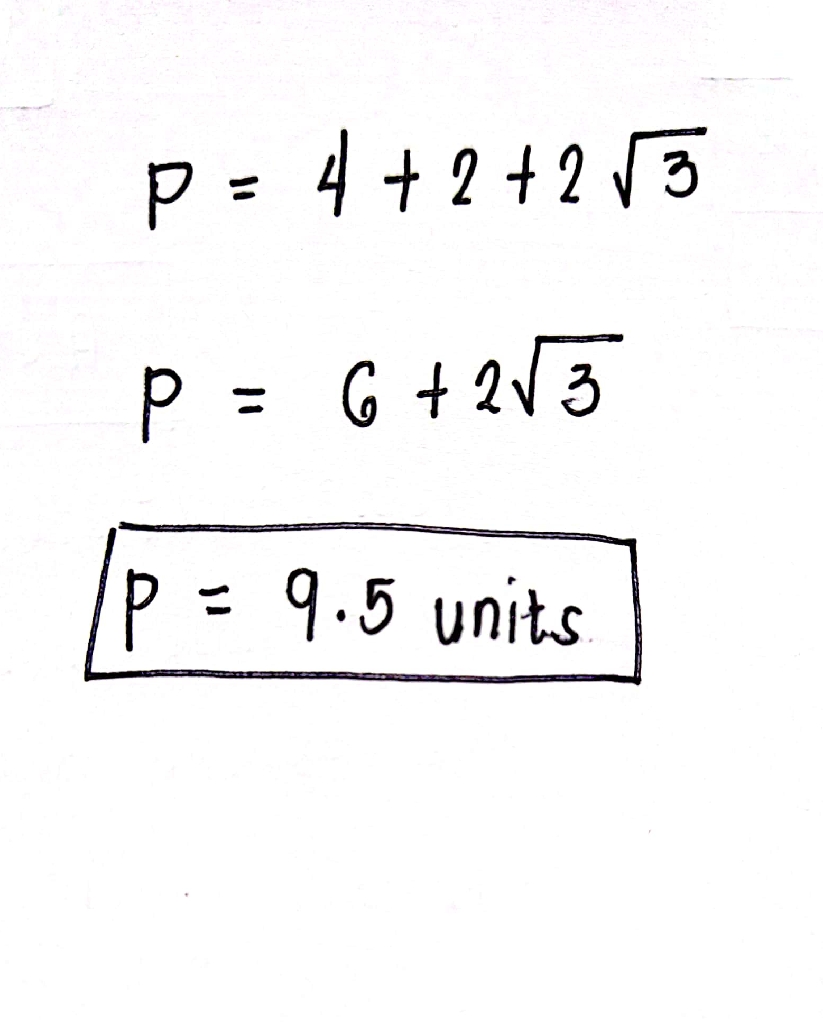 P = 4 + 2 + 2 √3
P = 6 + 2√3
P = 9.5 units